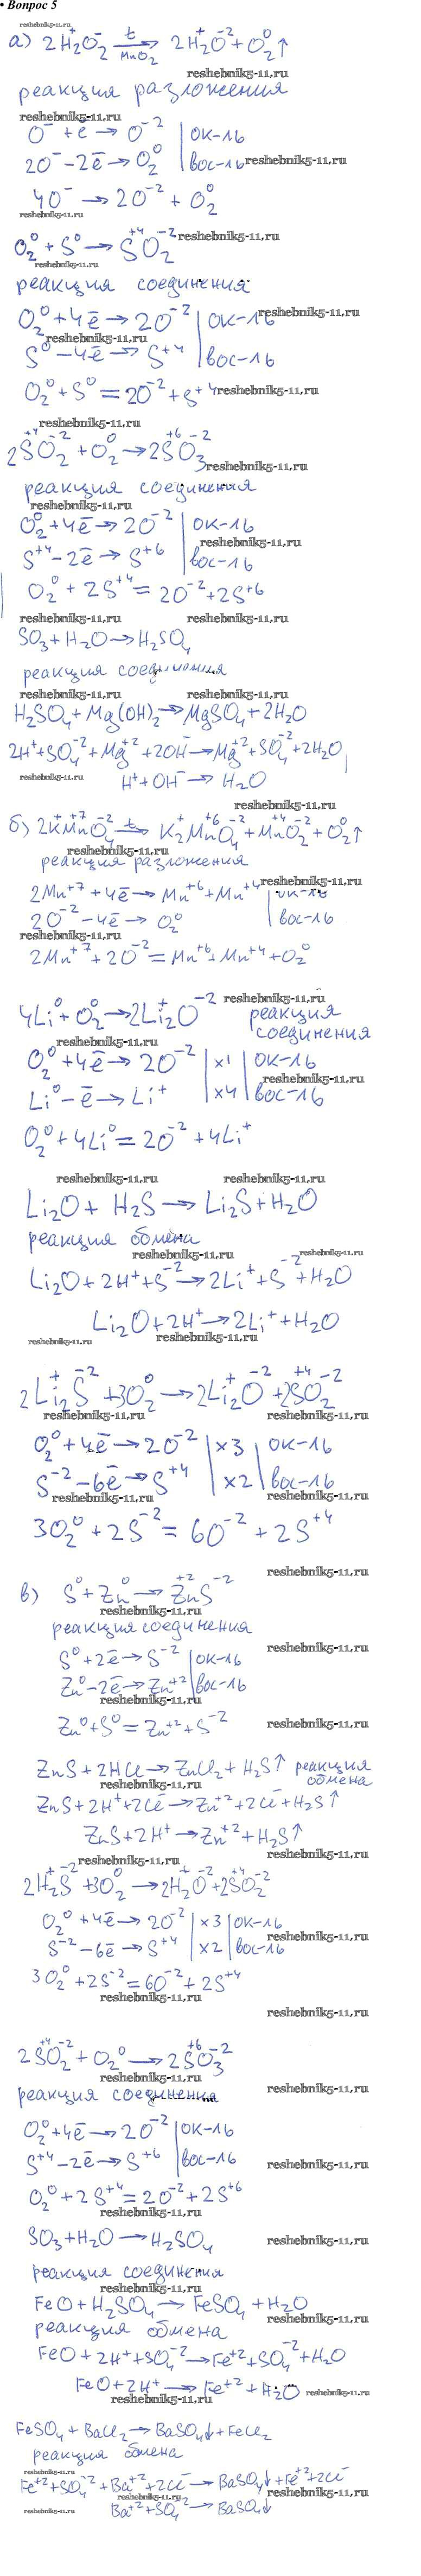 • Вопрос 5
reshebnik5-11.ru
а) 2H₂⁺O₂⁻ →(t, MnO₂) 2H₂⁺O⁻² + O₂⁰↑
reshebnik5-11.ru
реакция разложения
reshebnik5-11.ru
O⁻ + ē → O⁻² | ок-ль
2O⁻ - 2ē → O₂⁰ | вос-ль reshebnik5-11,ru
4O⁻ → 2O⁻² + O₂⁰
reshebnik5-11.ru
O₂⁰ + S⁰ → S⁺⁴O₂⁻² reshebnik5-11,ru
reshebnik5-11.ru
реакция соединения
O₂⁰ + 4ē → 2O⁻² | ок-ль reshebnik5-11,ru
reshebnik5-11.ru
S⁰ - 4ē → S⁺⁴ | вос-ль
O₂⁰ + S⁰ = 2O⁻² + S⁺⁴ reshebnik5-11.ru
reshebnik5-11.ru
2S⁺⁴O₂⁻² + O₂⁰ → 2S⁺⁶O₃⁻²
reshebnik5-11.ru
реакция соединения
reshebnik5-11.ru
O₂⁰ + 4ē → 2O⁻² | ок-ль
reshebnik5-11.ru
S⁺⁴ - 2ē → S⁺⁶ | вос-ль
O₂⁰ + 2S⁺⁴ = 2O⁻² + 2S⁺⁶
reshebnik5-11.ru reshebnik5-11.ru
SO₃ + H₂O → H₂SO₄
реакция соединения
reshebnik5-11.ru reshebnik5-11.ru
H₂SO₄ + Mg(OH)₂ → MgSO₄ + 2H₂O
2H⁺ + SO₄⁻² + Mg⁺² + 2OH⁻ → Mg⁺² + SO₄⁻² + 2H₂O
reshebnik5-11.ru
H⁺ + OH⁻ → H₂O
reshebnik5-11.ru
б) 2K⁺Mn⁺⁷O₄⁻² →(t) K₂⁺Mn⁺⁶O₄⁻² + Mn⁺⁴O₂⁻² + O₂⁰↑
reshebnik5-11.ru
реакция разложения
reshebnik5-11.ru
2Mn⁺⁷ + 4ē → Mn⁺⁶ + Mn⁺⁴ | ок-ль
2O⁻² - 4ē → O₂⁰ | вос-ль
reshebnik5-11.ru
2Mn⁺⁷ + 2O⁻² = Mn⁺⁶ + Mn⁺⁴ + O₂⁰
4Li⁰ + O₂⁰ → 2Li₂⁺O⁻² reshebnik5-11.ru реакция
соединения
reshebnik5-11.ru
O₂⁰ + 4ē → 2O⁻² | x1 | ок-ль
reshebnik5-11.ru
Li⁰ - ē → Li⁺ | x4 | вос-ль
O₂⁰ + 4Li⁰ = 2O⁻² + 4Li⁺
reshebnik5-11.ru reshebnik5-11.ru
Li₂O + H₂S → Li₂S + H₂O
реакция обмена
reshebnik5-11.ru reshebnik5-11.ru
Li₂O + 2H⁺ + S⁻² → 2Li⁺ + S⁻² + H₂O
Li₂O + 2H⁺ → 2Li⁺ + H₂O
reshebnik5-11.ru reshebnik5-11.ru
2Li₂⁺S⁻² + 3O₂⁰ → 2Li₂⁺O⁻² + 2S⁺⁴O₂⁻²
reshebnik5-11.ru reshebnik5-11.ru
O₂⁰ + 4ē → 2O⁻² | x3 | ок-ль
S⁻² - 6ē → S⁺⁴ | x2 | вос-ль
reshebnik5-11.ru reshebnik5-11.ru
3O₂⁰ + 2S⁻² = 6O⁻² + 2S⁺⁴
reshebnik5-11.ru
в) S⁰ + Zn⁰ → Zn⁺²S⁻²
reshebnik5-11.ru
реакция соединения
reshebnik5-11.ru
S⁰ + 2ē → S⁻² | ок-ль
Zn⁰ - 2ē → Zn⁺² | вос-ль
reshebnik5-11.ru
Zn⁰ + S⁰ = Zn⁺² + S⁻² reshebnik5-11.ru
ZnS + 2HCl → ZnCl₂ + H₂S↑ реакция
обмена
reshebnik5-11.ru
ZnS + 2H⁺ + 2Cl⁻ → Zn⁺² + 2Cl⁻ + H₂S↑
ZnS + 2H⁺ → Zn⁺² + H₂S↑
reshebnik5-11.ru
reshebnik5-11.ru
2H₂⁺S⁻² + 3O₂⁰ → 2H₂⁺O⁻² + 2S⁺⁴O₂⁻²
O₂⁰ + 4ē → 2O⁻² | x3 | ок-ль
reshebnik5-11.ru
S⁻² - 6ē → S⁺⁴ | x2 | вос-ль
3O₂⁰ + 2S⁻² = 6O⁻² + 2S⁺⁴
reshebnik5-11.ru
reshebnik5-11.ru
2S⁺⁴O₂⁻² + O₂⁰ → 2S⁺⁶O₃⁻²
reshebnik5-11.ru
реакция соединения
reshebnik5-11.ru
O₂⁰ + 4ē → 2O⁻² | ок-ль
S⁺⁴ - 2ē → S⁺⁶ | вос-ль
reshebnik5-11.ru
O₂⁰ + 2S⁺⁴ = 2O⁻² + 2S⁺⁶
reshebnik5-11.ru
SO₃ + H₂O → H₂SO₄ reshebnik5-11.ru
реакция соединения
reshebnik5-11.ru
FeO + H₂SO₄ → FeSO₄ + H₂O
reshebnik5-11.ru
реакция обмена
FeO + 2H⁺ + SO₄⁻² → Fe⁺² + SO₄⁻² + H₂O
FeO + 2H⁺ → Fe⁺² + H₂O reshebnik5-11.ru
reshebnik5-11.ru
FeSO₄ + BaCl₂ → BaSO₄↓ + FeCl₂
реакция обмена
reshebnik5-11.ru
Fe⁺² + SO₄⁻² + Ba⁺² + 2Cl⁻ → BaSO₄↓ + Fe⁺² + 2Cl⁻
reshebnik5-11.ru reshebnik5-11.ru
Ba⁺² + SO₄⁻² → BaSO₄↓
reshebnik5-11.ru